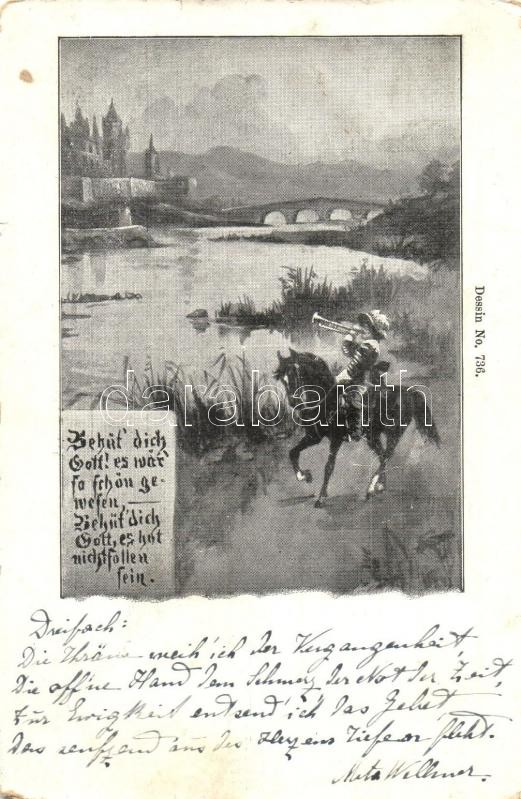 Dessin No. 736.
darabanth
Behüt' dich
Gott! es wär'
so schön ge-
wesen, —
Behüt' dich
Gott, es hat
nicht sollen
sein.
Dreifach:
Die Thräne weih' ich der Vergangenheit,
Die off'ne Hand dem Schmerz der Not der Zeit,
Für Ewigkeit entsend' ich das Gebet,
Das seufzend aus des Herzens Tiefe fleht.
Meta Wellmer.